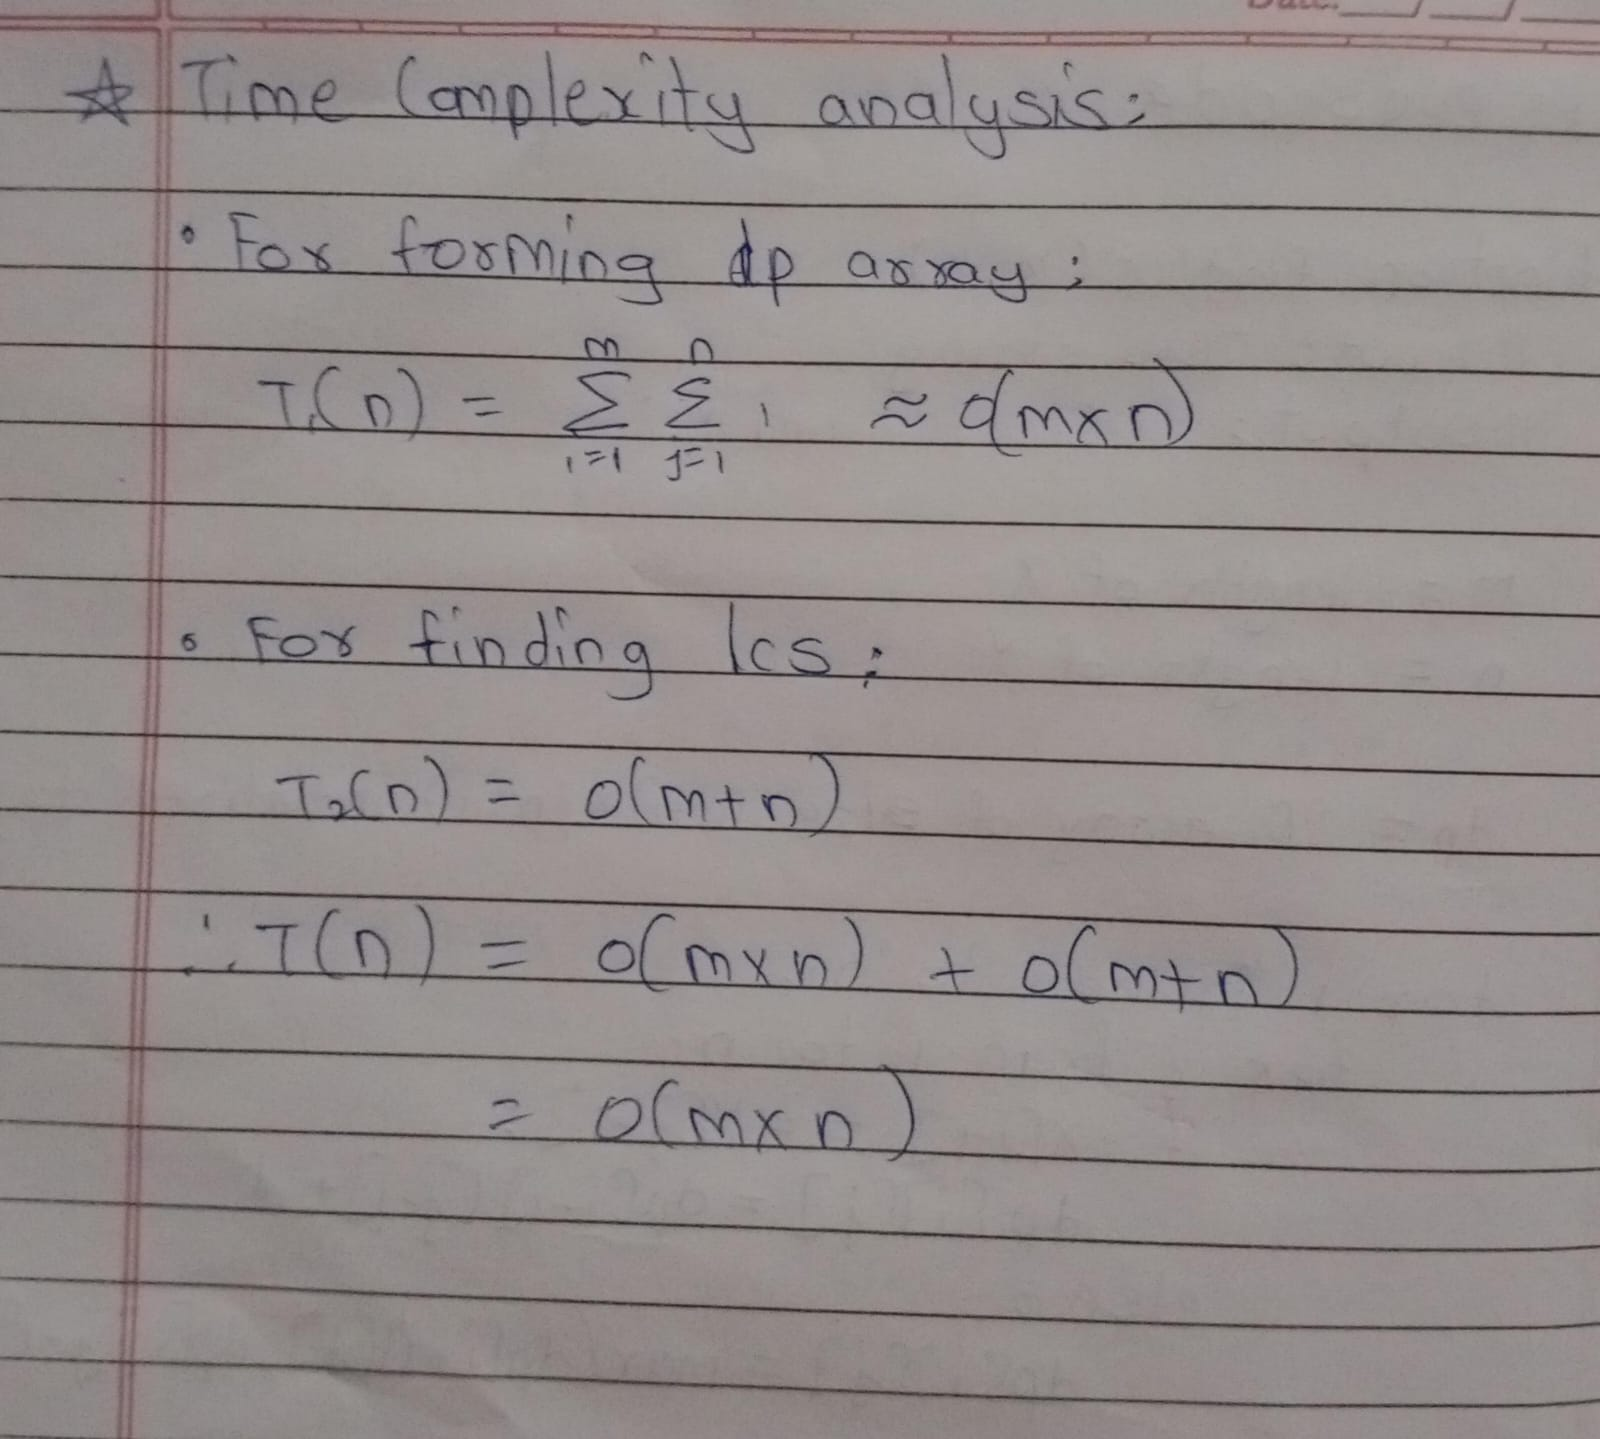 Date:
☆ Time Complexity analysis:
• For forming dp array:
T₁(n) = m∑i=1 n∑j=1 1 ≈ O(m×n)
• For finding lcs:
T₂(n) = O(m+n)
∴ T(n) = O(m×n) + O(m+n)
= O(m×n)